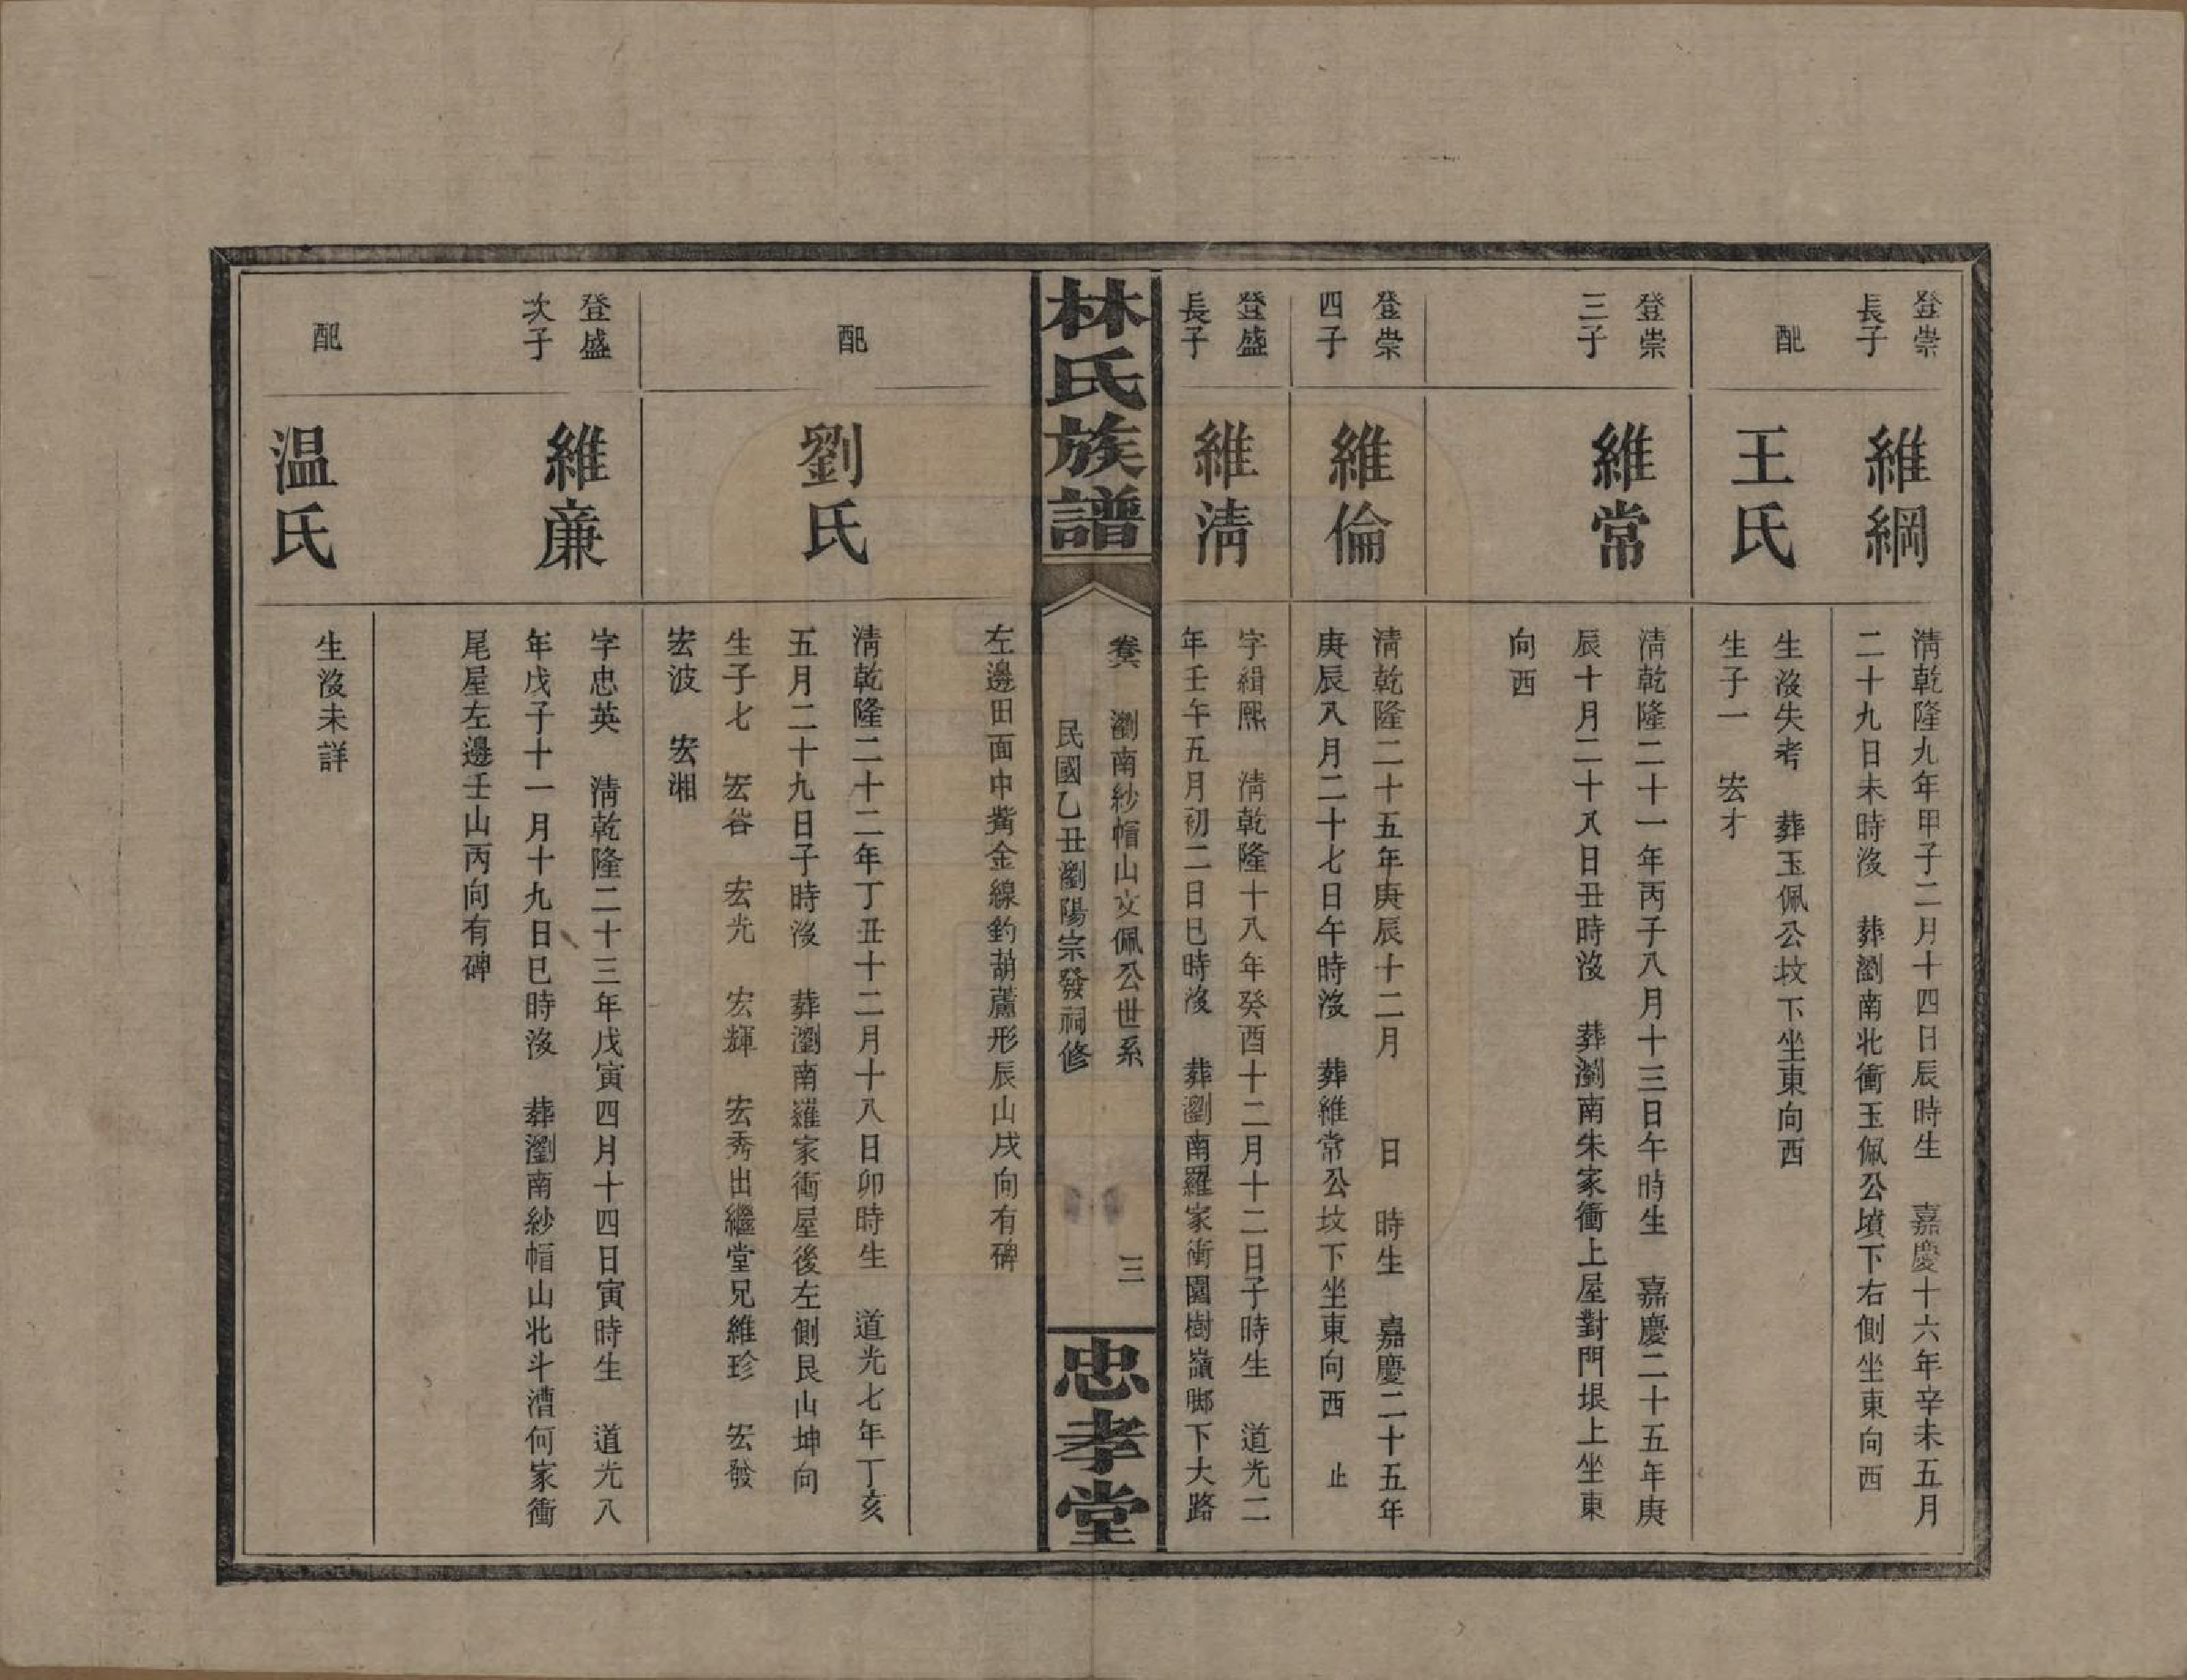 登崇
長子
維綱
淸乾隆九年甲子二月十四日辰時生　嘉慶十六年辛未五月
二十九日未時沒　葬瀏南北衝玉佩公墳下右側坐東向西
配
王氏
生沒失考　葬玉佩公坟下坐東向西
生子一　宏才
登崇
三子
維常
淸乾隆二十一年丙子八月十三日午時生　嘉慶二十五年庚
辰十月二十八日丑時沒　葬瀏南朱家衝上屋對門垠上坐東
向西
登崇
四子
維倫
淸乾隆二十五年庚辰十二月　日　時生　嘉慶二十五年
庚辰八月二十七日午時沒　葬維常公坟下坐東向西　止
登盛
長子
維淸
字緝熙　淸乾隆十八年癸酉十二月十二日子時生　道光二
年壬午五月初二日巳時沒　葬瀏南羅家衝園樹嶺脚下大路
林氏族譜
卷六　瀏南紗帽山文佩公世系
民國乙丑瀏陽宗發祠修
三
忠孝堂
左邊田面中觜金線釣葫蘆形辰山戌向有碑
配
劉氏
淸乾隆二十二年丁丑十二月十八日卯時生　道光七年丁亥
五月二十九日子時沒　葬瀏南羅家衝屋後左側艮山坤向
生子七　宏谷　宏光　宏輝　宏秀出繼堂兄維珍　宏發
宏波　宏湘
登盛
次子
維廉
字忠英　淸乾隆二十三年戊寅四月十四日寅時生　道光八
年戊子十一月十九日巳時沒　葬瀏南紗帽山北斗漕何家衝
尾屋左邊壬山丙向有碑
配
温氏
生沒未詳